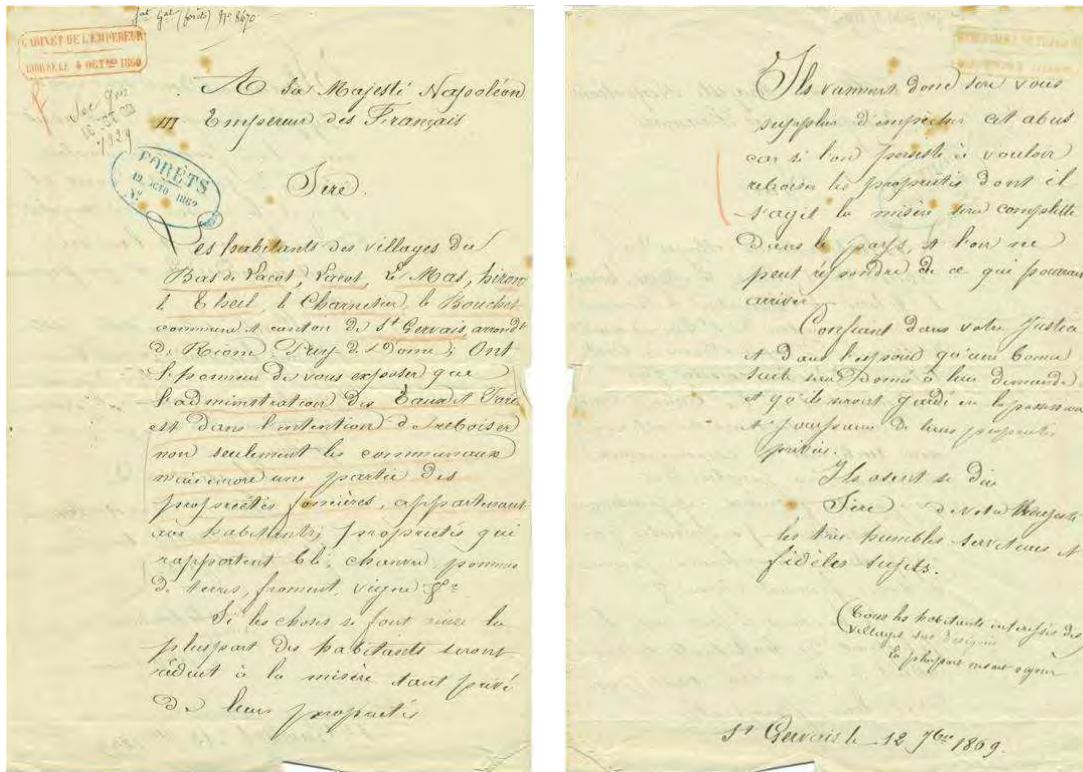 CABINET DE L'EMPEREUR
4 OCTBRE 1869
FORÊTS
OCTO 1869
No
A Sa Majesté Napoléon
III Empereur des Français
Sire.
Les habitants des villages du
Bas de Vacot, Vacot, le Mas,
le Theil, le Charnetier, le Bouchet
commune et canton de St Gervais, arrondt
de Riom, Puy-de-Dome; Ont
l'honneur de vous exposer que
l'administration des Eaux et Forêts
est dans l'intention de reboiser
non seulement les communaux
mais encore une partie des
propriétés foncières, appartenant
aux habitants; propriétés qui
rapportent blé, chanvre, pommes
de terres, froment, vigne &a
Si les choses se font ainsi la
pluspart des habitants seront
réduit à la misère étant privé
de leurs propriétés
Ils viennent donc sire vous
supplier d'empecher cet abus
car si l'on persiste à vouloir
reboiser les propriétés dont il
s'agit la misère sera complette
dans le pays, et l'on ne
peut répondre de ce qui pourrait
arriver.
Confiant dans votre Justice
et dans l'espoir qu'une bonne
suite sera donné à leur demande
et qu'ils seront gardé en la possession
et jouissance de leurs propriétés
privées.
Ils osent se dire
Sire de votre Majesté
les très humbles serviteurs et
fidèles sujets.
(Tous les habitants interessés des
villages sus désignés
La pluspart ne sachant signer
St Gervais le 12 7bre 1869.